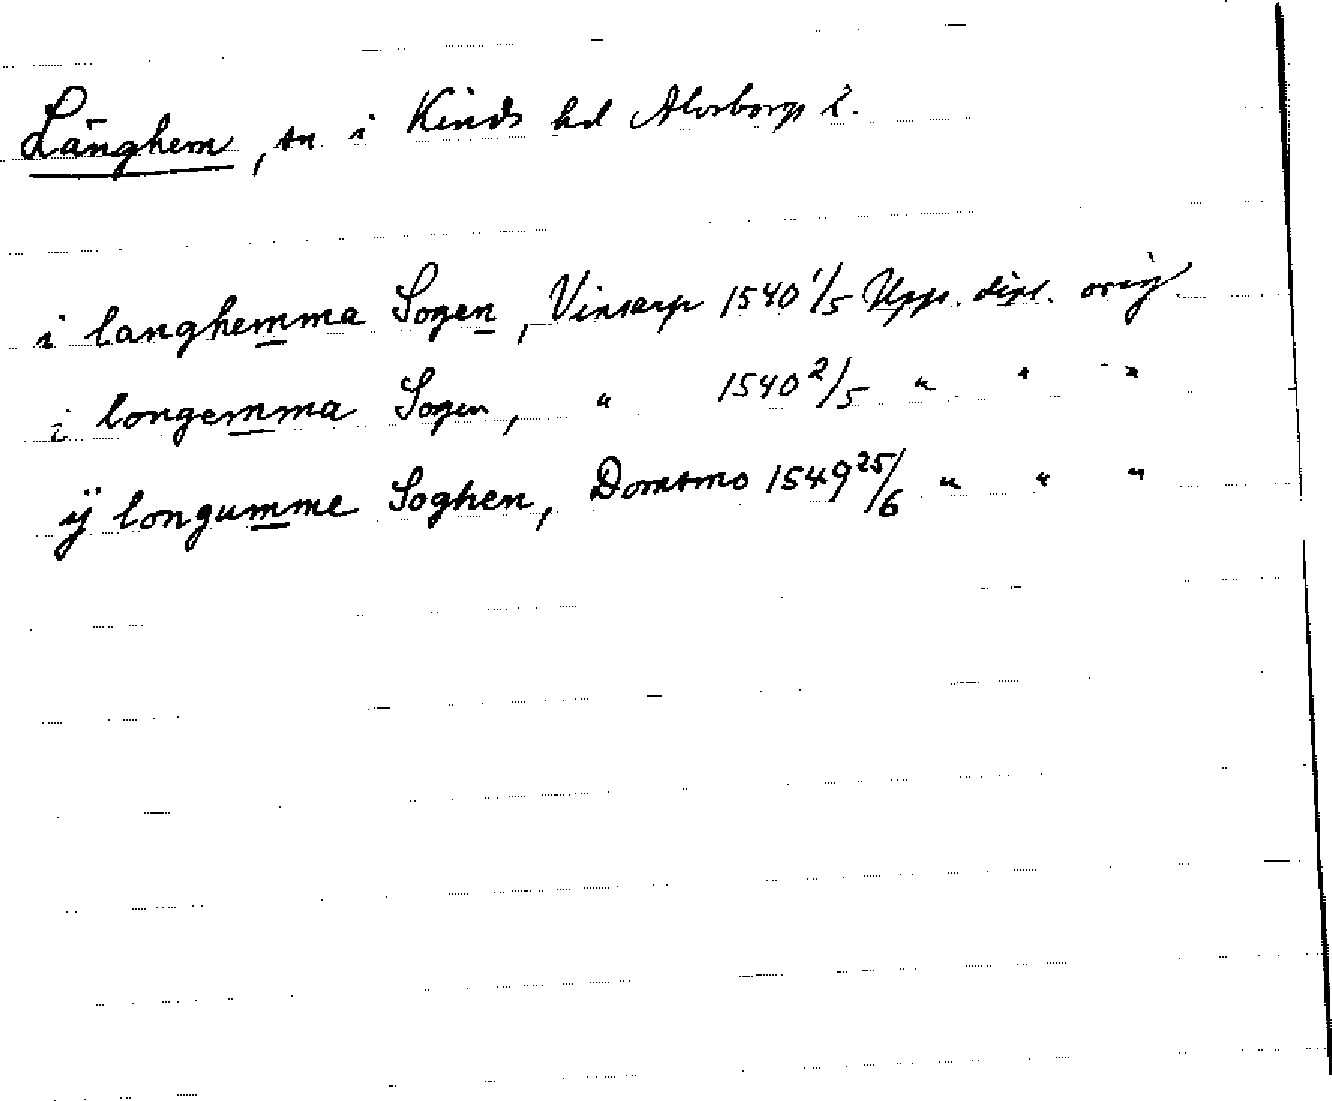 Länghem, sn i Kinds hd Älvsborgs l.
i langhemma Sogen, Vinsarp 1540 1/5 Upps. dipl. orig.
i longemma Sogen, " 1540 2/5 " " "
ÿ longumme Soghen, Domsmo 1549 25/6 " " "